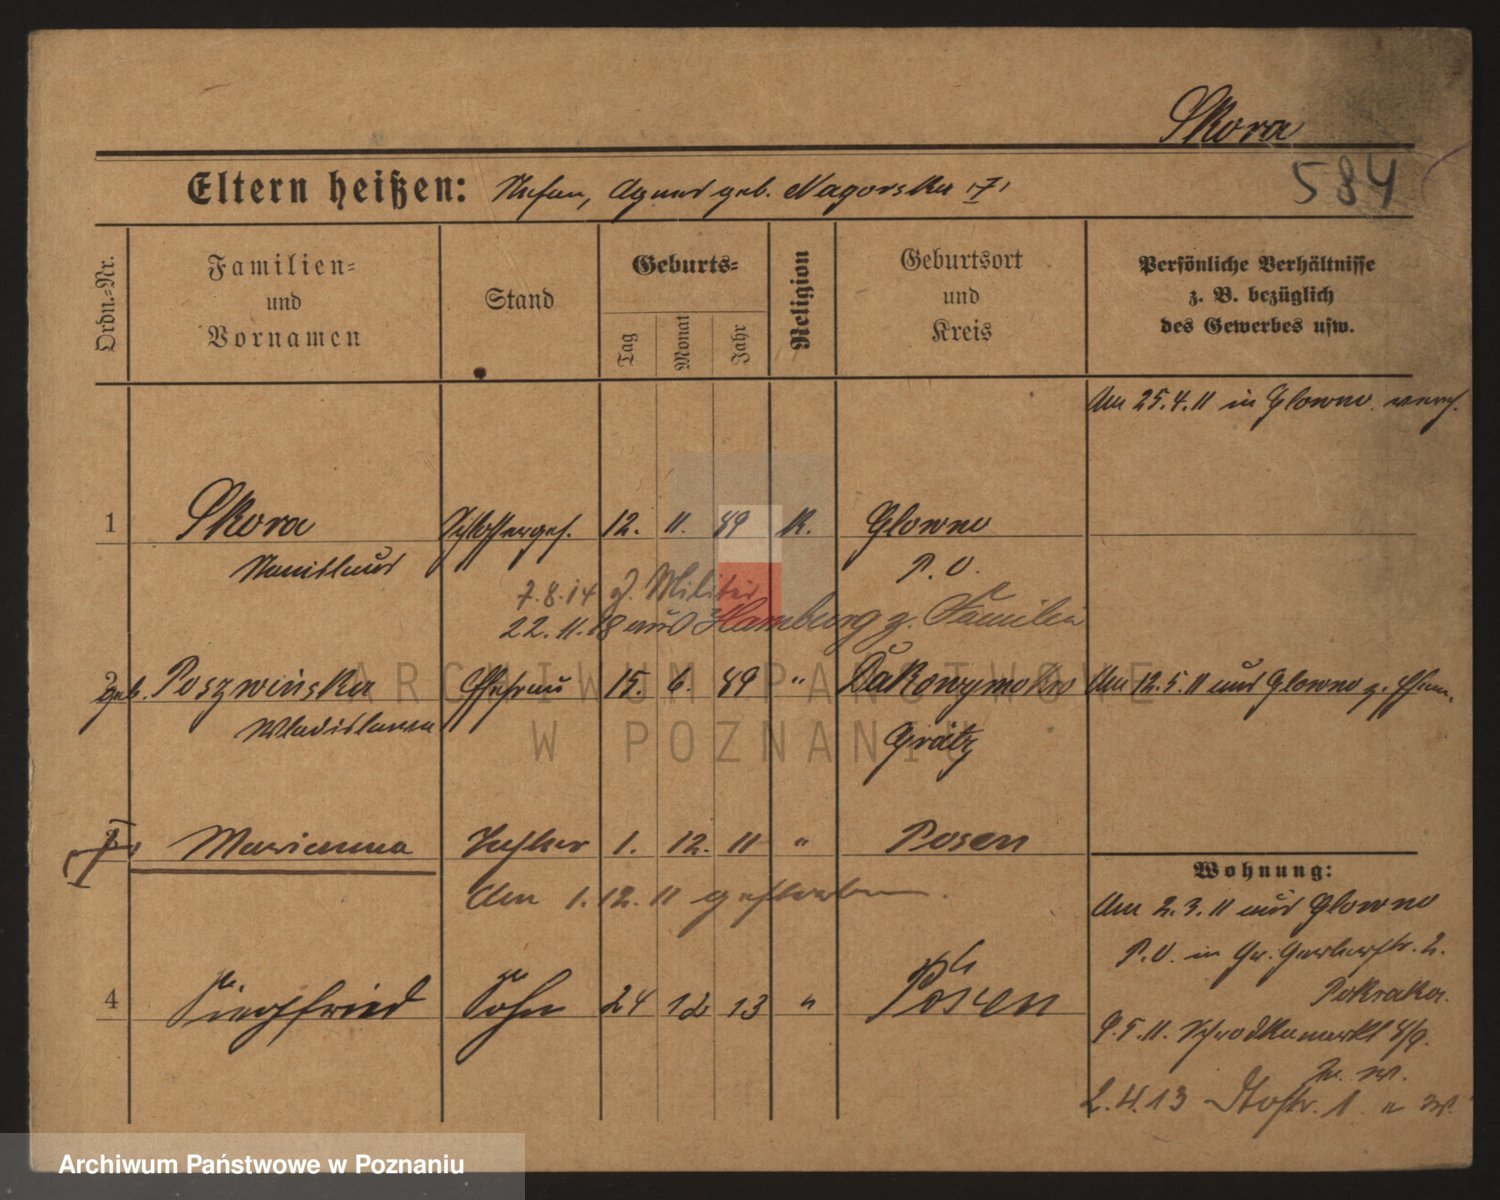 Skora
584
Eltern heißen: Stefan, Agnes geb. Nagorska
Ordn.-Nr.
Familien-
und
Vornamen
Stand
Geburts-
Tag
Monat
Jahr
Religion
Geburtsort
und
Kreis
Persönliche Verhältnisse
z. B. bezüglich
des Gewerbes usw.
Am 25.4.11 in Glowno
1 Skora Schlosserges. 12. 11. 89 K. Glowno
Stanislaus P.O.
7.8.14 z. Militär
22.11.18 aus Hamburg z. Familie
2 geb. Poszwinska Ehefrau 15. 6. 89 " Dakowymokre Am 12.5.11 aus Glowno z. Ehem.
Wladislawa Grätz
Marianna Tochter 1. 12. 11 " Posen
Am 1.12.11 gestorben.
Wohnung:
Am 2.3.11 aus Glowno
P.O. in Gr. Gerberstr. 2.
4 Siegfried Sohn 24 12 13 " Posen
Pokraka.
9.5.11. Schrodkamarkt 8/9.
2.4.13
ARCHIWUM PAŃSTWOWE
W POZNANIU
Archiwum Państwowe w Poznaniu